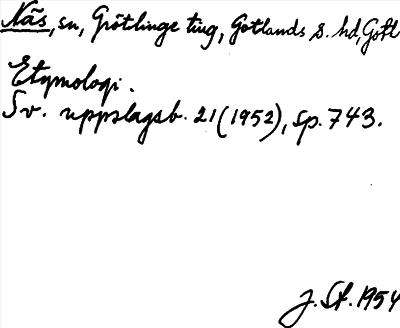 Näs, sn, Grötlinge ting, Gotlands s. hd, Gotl
Etymologi.
Sv. uppslagsb. 21 (1952), sp. 743.
J. St. 1954